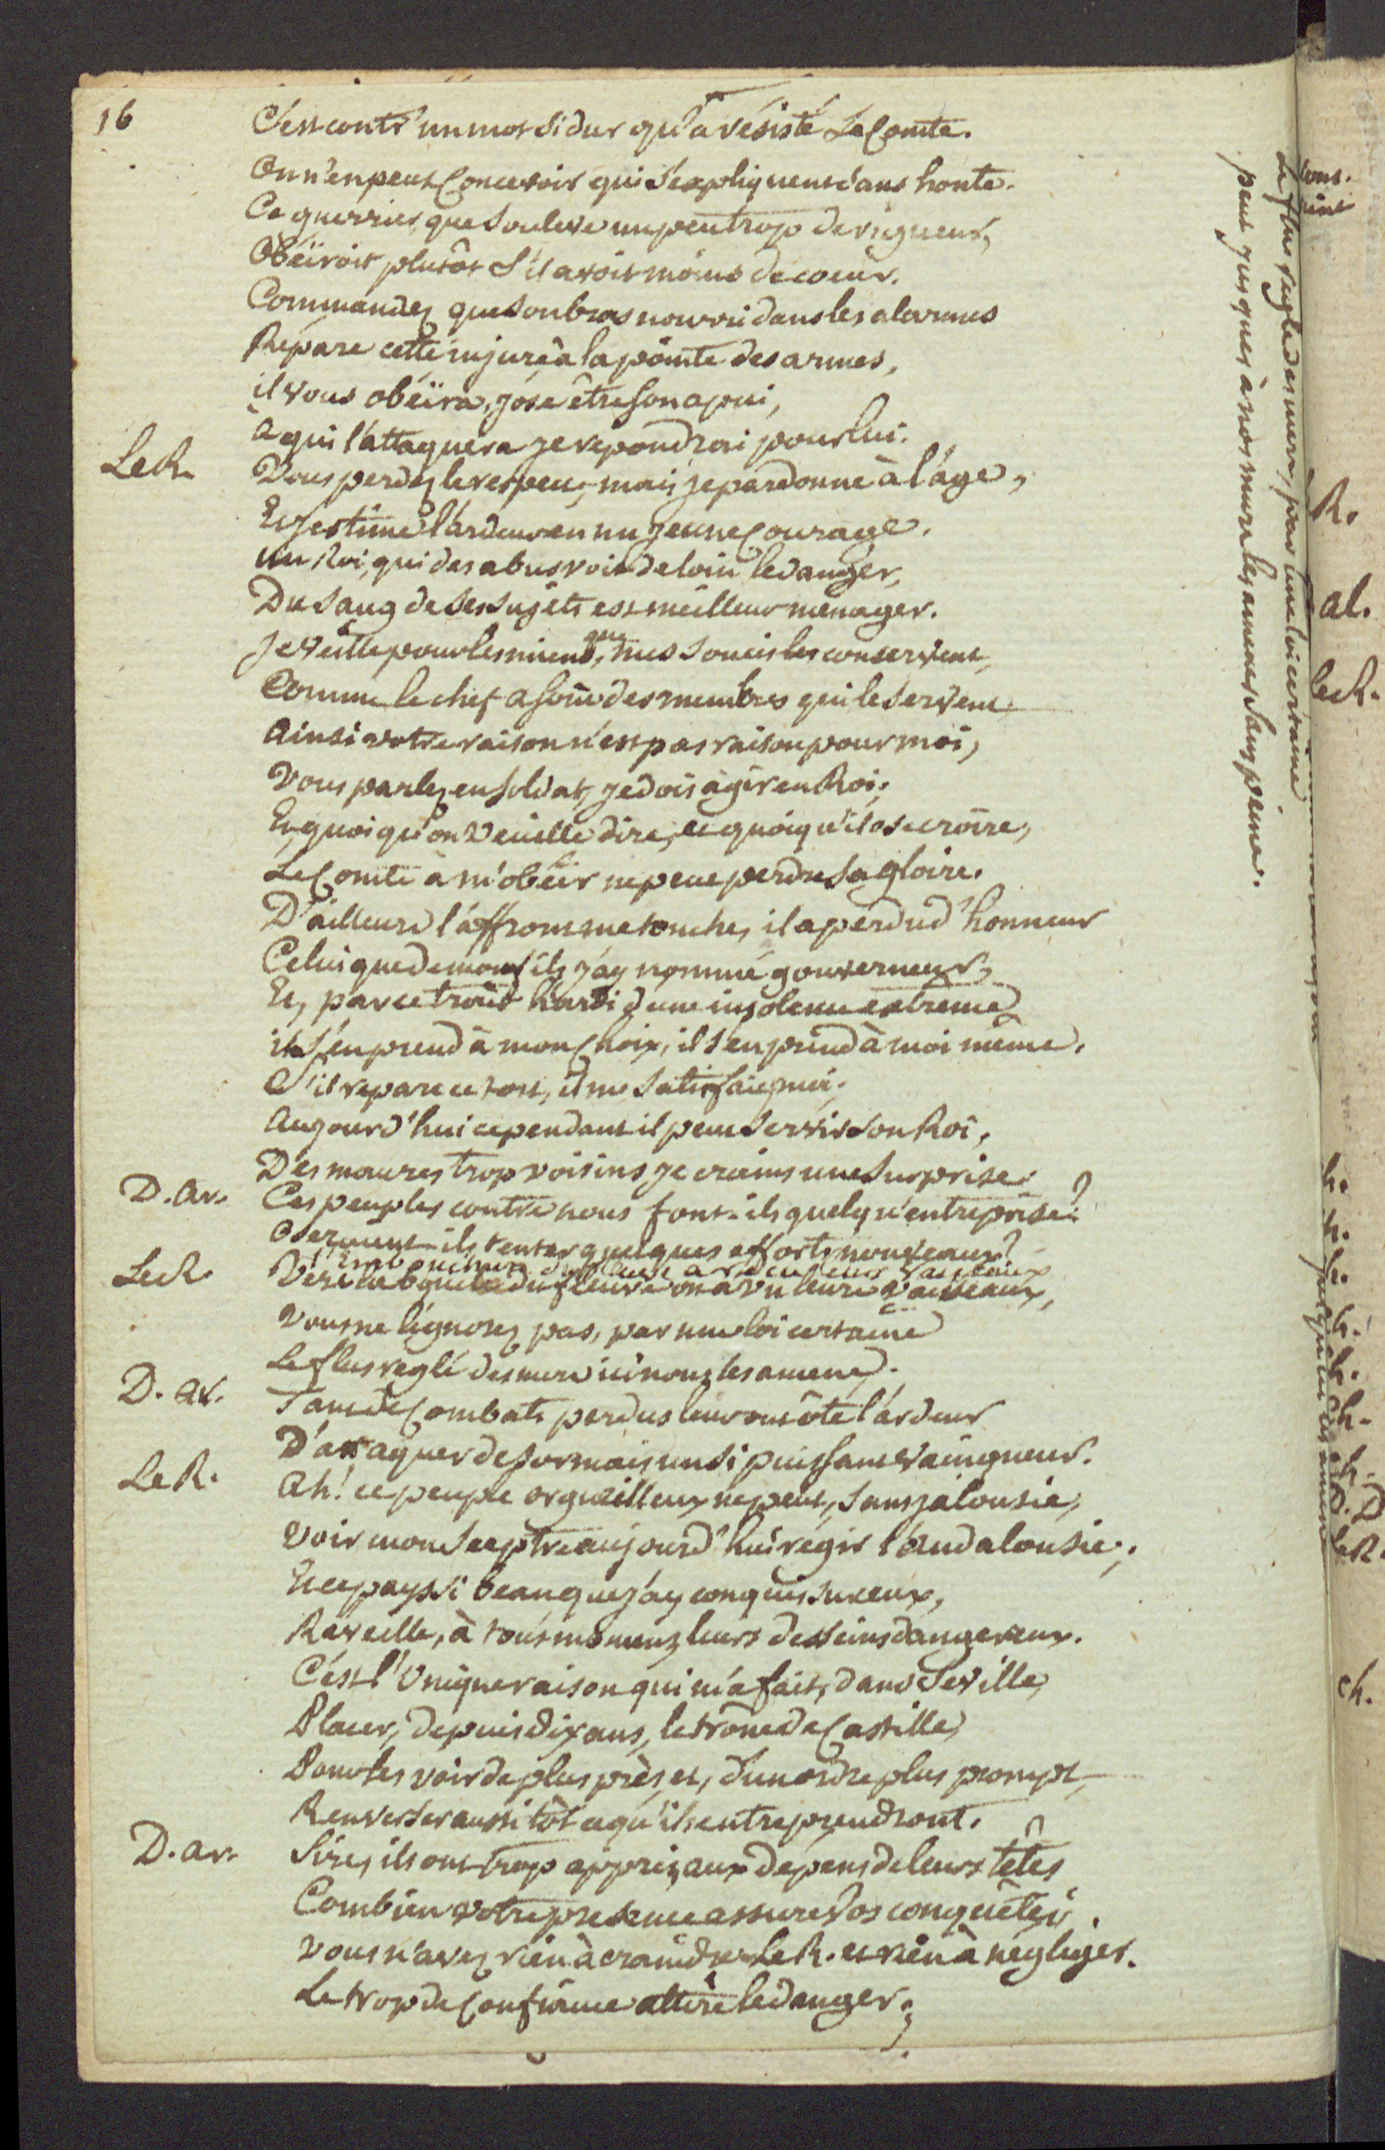 16
C'est contr' un mot si dur qu'a résisté Le Comte.
On n'en peut Concevoir qui s'expliquent sans honte.
Ce guerrier, que souleve un peu trop de rigueur,
Obéïroit plutôt S'il avoit moins de coeur.
Commandez que son bras nourri dans les alarmes
Répare cette injure à la pointe des armes,
il vous obéïra, j'ose être son apui,
à qui l'attaquera je repondrai pour lui.
Le R. Vous perdez le respect, mais je pardonne à l'áge,
Et j'estime l'ardeur en un jeune Courage.
un Roi, qui des abus voit de loin le danger,
Du sang de ses sujets est meilleur ménager.
Je veille pour les miens, que mes soucis les conservent,
Comme le chef a soin des membres qui le servent
Ainsi votre raison n'est pas raison pour moi,
Vous parlez en soldat, je dois agir en Roi;
Et, quoi qu'on veuille dire, et quoiqu'il ose croire,
Le Comte à m'obéir ne peut perdre sa gloire.
D'ailleurs l'affront me touche, il a perdu d'honneur
Celui que de mon fils j'ay nommé gouverneur,
Et, par ce trait hardi d'une insolence extreme
il s'en prend à mon Choix, il s'en prend à moi même.
S'il repare ce tort, il me satisfait, moi;
Aujourd'hui cependant il peut servir son Roi,
Des maures trop voisins je crains une surprise.
D. ar. Ces peuples contre nous font-ils quelqu'entreprise?
Oseroient-ils tenter quelques efforts nouveaux?
Vers l'embouchure
Le R. Vers la bouche du fleuve on a vu leurs vaisseaux,
Vous ne l'ignorez pas, par une loi certaine
Le flus reglé des mers ici nous les amene.
D. ar. Tant de Combats perdus leur ont ôté l'ardeur
D'attaquer desormais un si puissant vainqueur.
Le R. Ah! ce peuple orgueilleux ne peut, sans jalousie,
Voir mon sceptre aujourd'hui régir l'Andalousie;
Et ce pays si beau que j'ay conquis sur eux,
Reveille, à tous momens leurs desseins dangereux.
C'est l'Unique raison qui m'a fait, dans Seville,
Placer, depuis dix ans, le trône de Castille,
Pour les voir de plus près, et, d'un ordre plus prompt,
Renverser aussitôt ce qu'ils entreprendront.
D. ar. Sire, ils ont trop appris, aux dépens de leurs têtes
Combien votre présence assure vos conquêtes
Vous n'avez rien à craindre Le R. et rien à négliger.
Le trop de Confiance attire le danger;
Le flus reglé des mers, par une loi certaine
peut jusques à nos murs les amener sans peine.
R.
al.
le R.
ch.